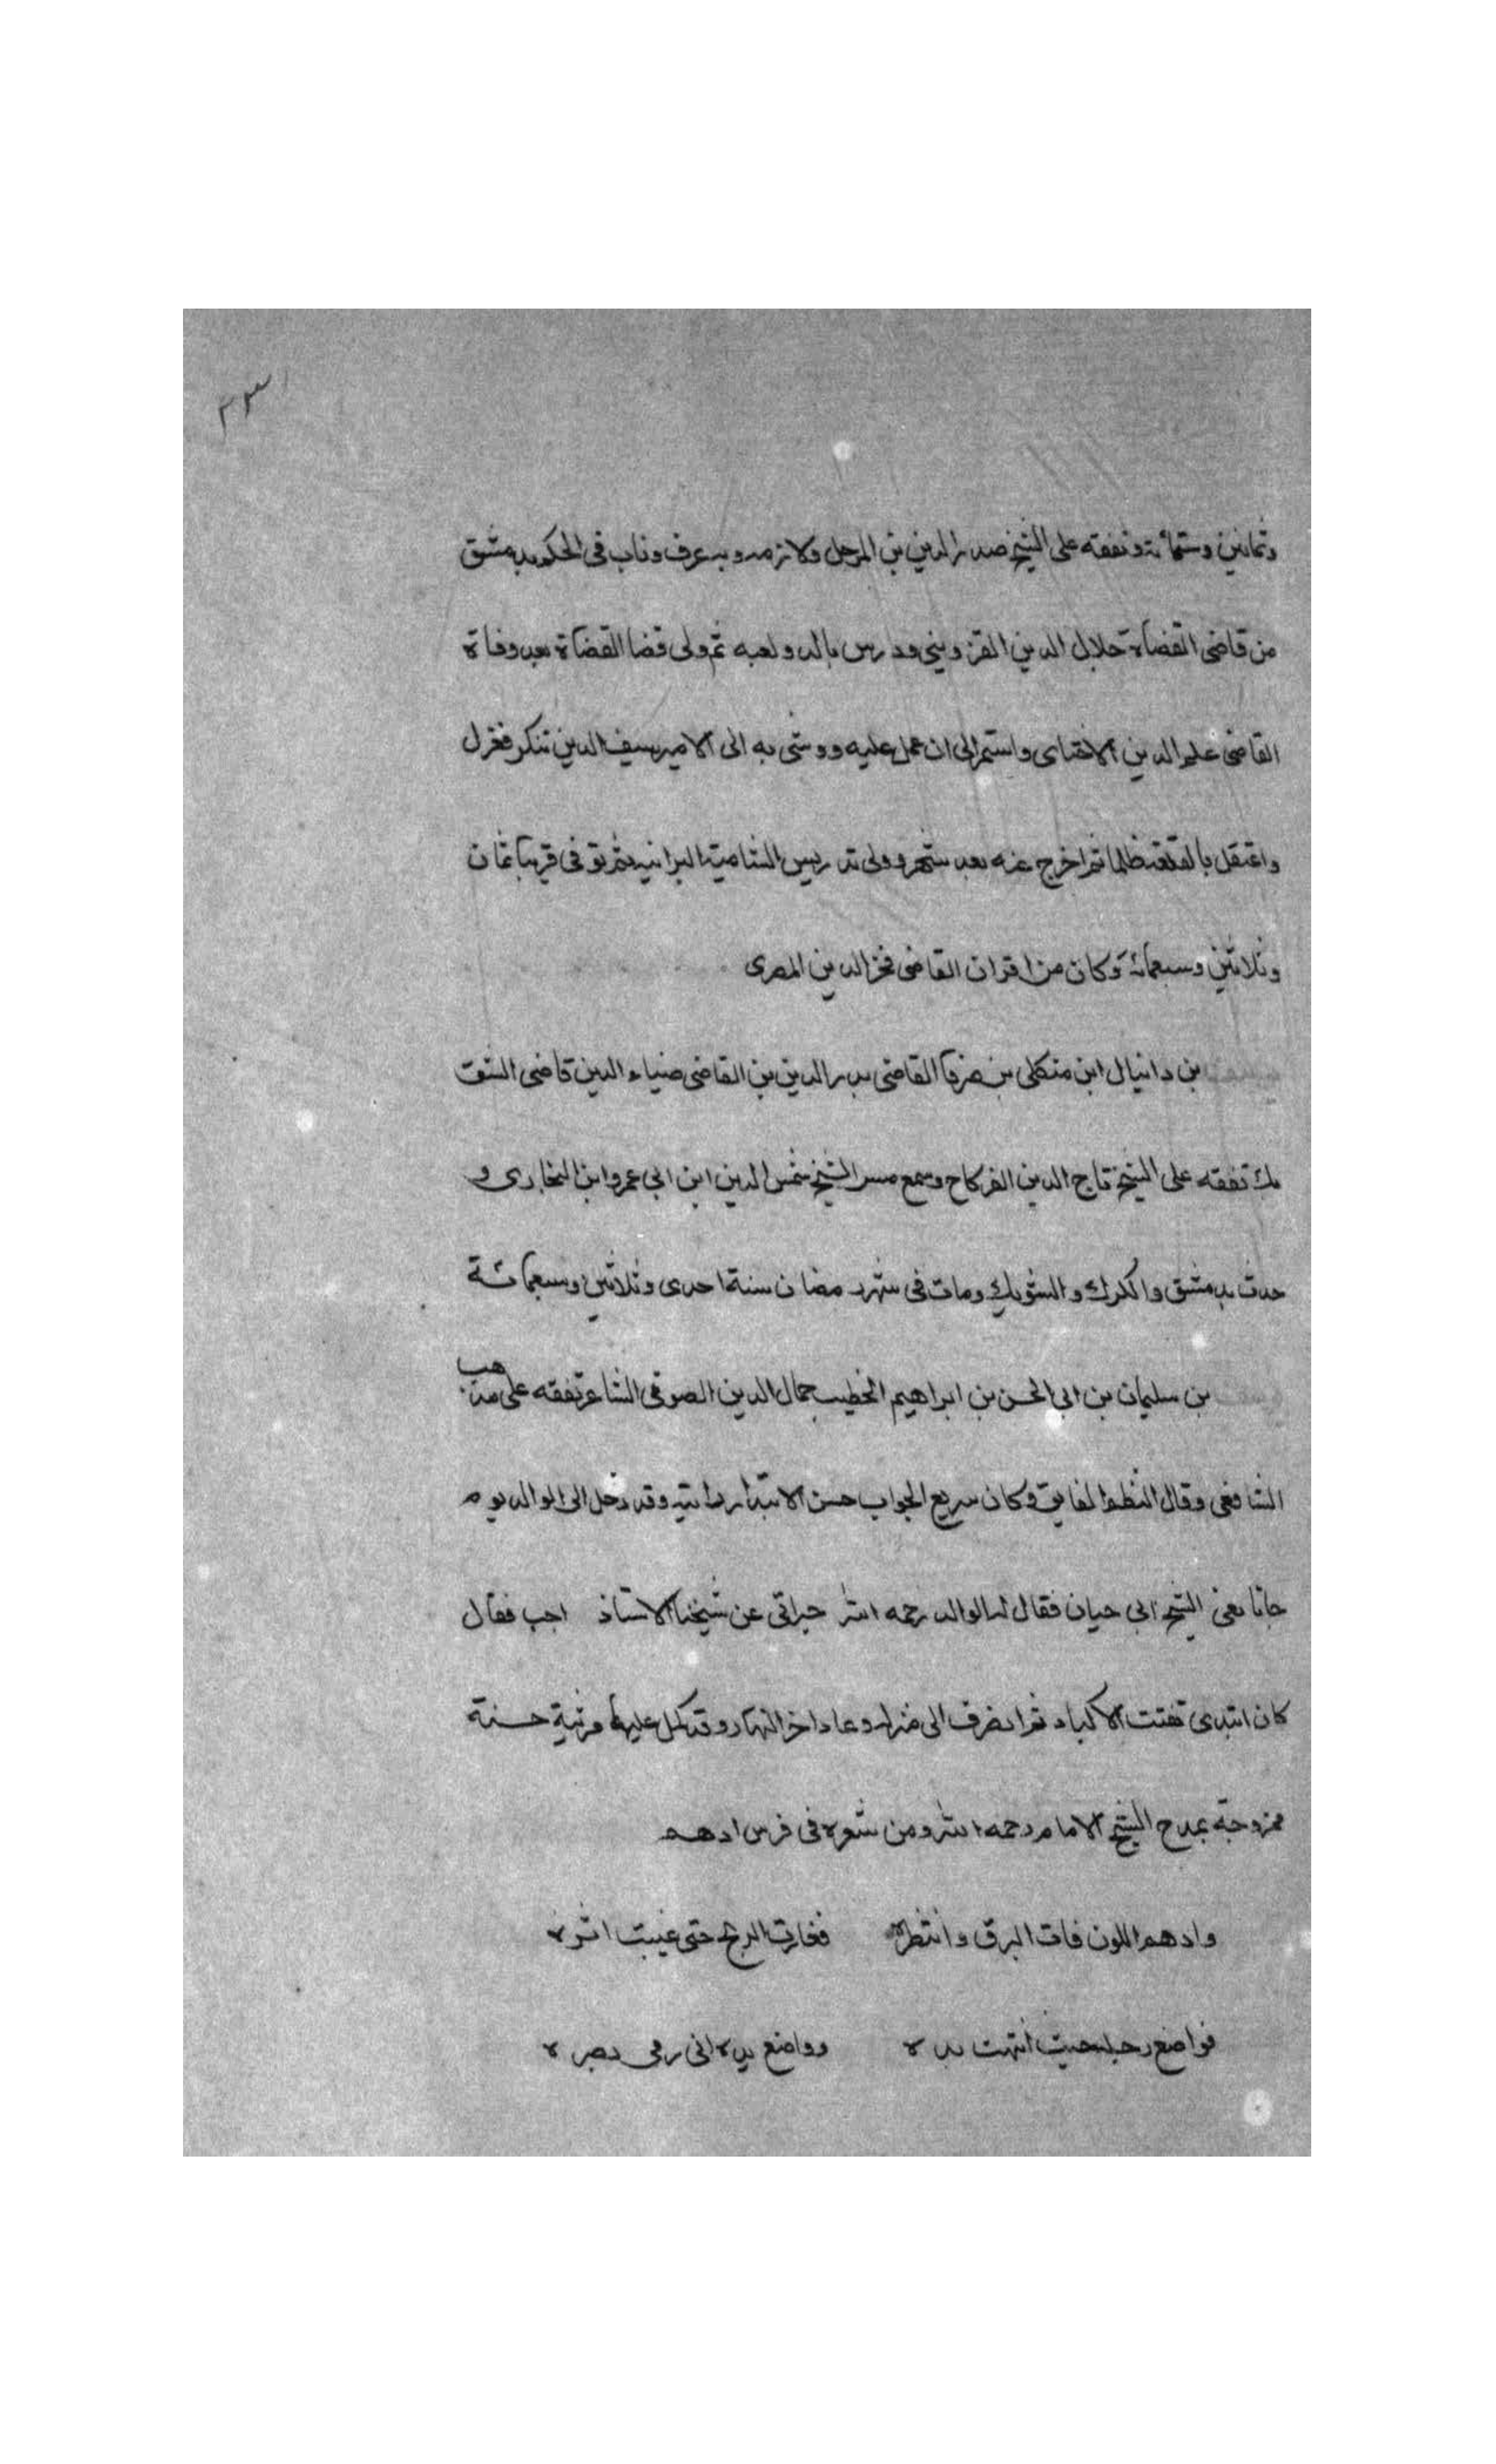 وثمانين وستمائة وتفقه على الشيخ صدر الدين بن المرحل ولازمه وبه عرف وناب فى الحكم بدمشق
من قاضى القضاة جلال الدين القزوينى ودرس بالدولعيه ثم ولى قضا القضاة بعد وفاة
القاضى علم الدين الاخناى واستمر الى ان عمل عليه ووشى به الى الامير سيف الدين تنكر فعزل
واعتقل بالقلعة ظلما ثم اخرج عنه بعد شهر وولى تدريس الشامية البرانيه ثم توفى قريبا ثمان
وثلاثين وسبعمائة وكان من اقران القاضى فخر الدين المصرى
بن دانيال ابن منكلى بن صرفا القاضى بدر الدين بن القاضى ضياء الدين قاضى الشوبك
تفقه على الشيخ تاج الدين الفركاح وسمع من الشيخ شمس الدين ابن ابى عمر وابن البخارى و
حدث بدمشق والكرك والشوبك ومات فى شهر رمضان سنة احدى وثلاثين وسبعمائة
بن سليمان بن ابى الحسن بن ابراهيم الخطيب جمال الدين الصوفى الشاعر تفقه على مذهب
الشافعى وقال النظم الفايق وكان سريع الجواب حسن الابتدار بداتيه وقد دخل الى الوالد يوم
جانا نعى الشيخ ابى حيان فقال له الوالد رحمه الله خبراتى عن شيخنا الاستاذ اجب فقال
كان ابتدى تفتت الاكباد ثم انصرف الى منزله وعاد اخر النهار وقد كمل عليها مرثية حسنة
ممزوجة بمدح الشيخ الامام رحمه الله ومن شعره فى فرس ادهم
وادهم اللون فات البرق وانتظره فغارت الريح حتى غيبت اثره
فواضع رجله حيث انتهت يده وواضع يده انى رمى بصره